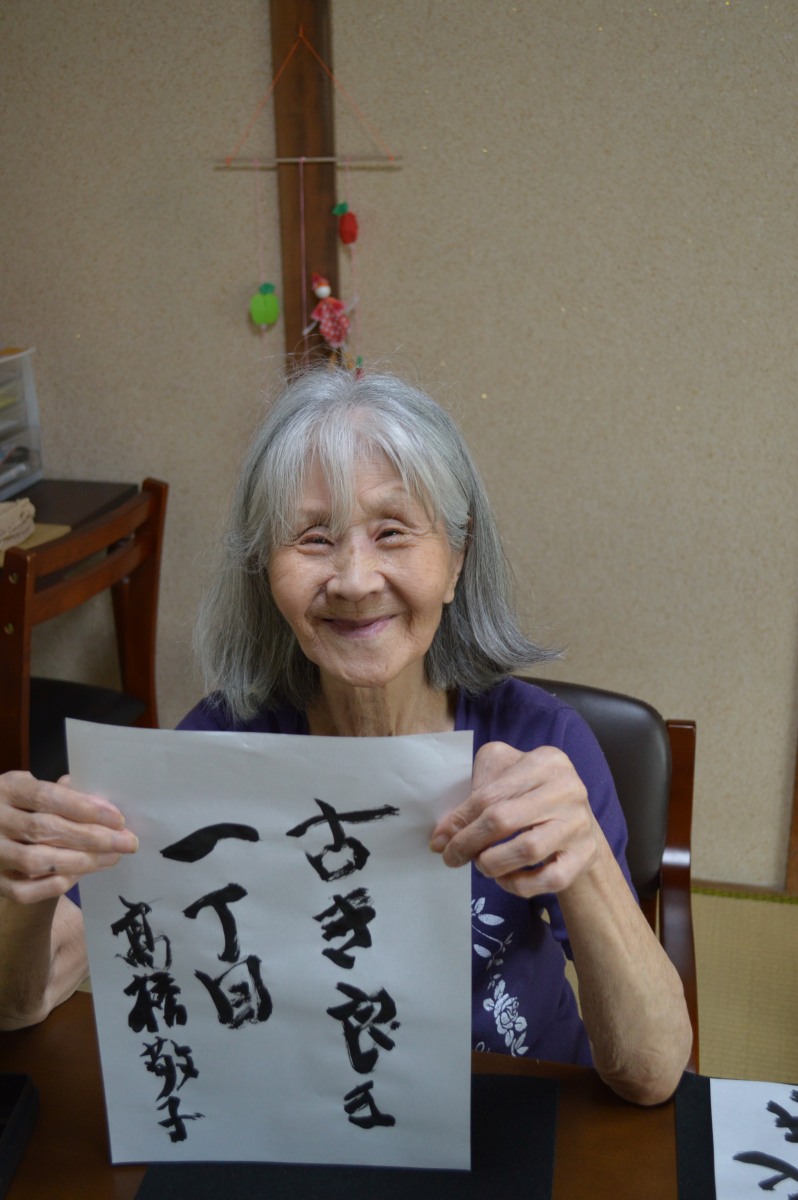 古き良き
一丁目
高橋敬子